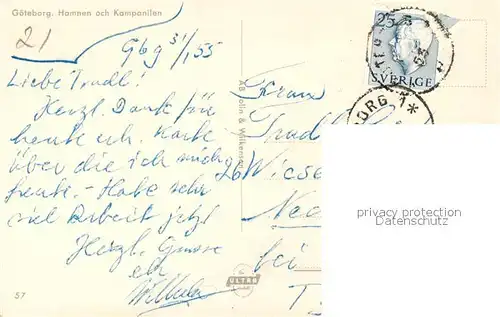 Göteborg. Hamnen och Kampanilen
21
Gbg 31/1 55
Liebe Trudl!
Herzl. Dank für
heute erh. Karte
über die ich mich
freute. - Habe sehr
viel Arbeit jetzt
Herzl. Grüsse
AB Jolin & Wilkenson
25
SVERIGE
55
ORG 1*
Frau
Trudl
26 Wiese
bei
privacy protection
Datenschutz
ULTRA
57